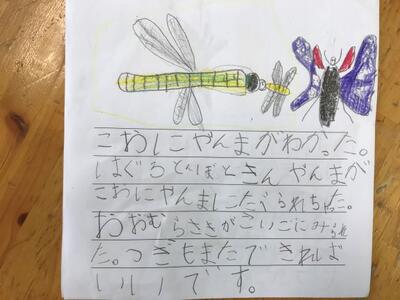 こおにやんまがわかった。
はぐろとんぼときんやんまが
こおにやんまにたべられちゃった。
おおむらさきがさいごにみられ
た。つぎもまたできれば
いいです。